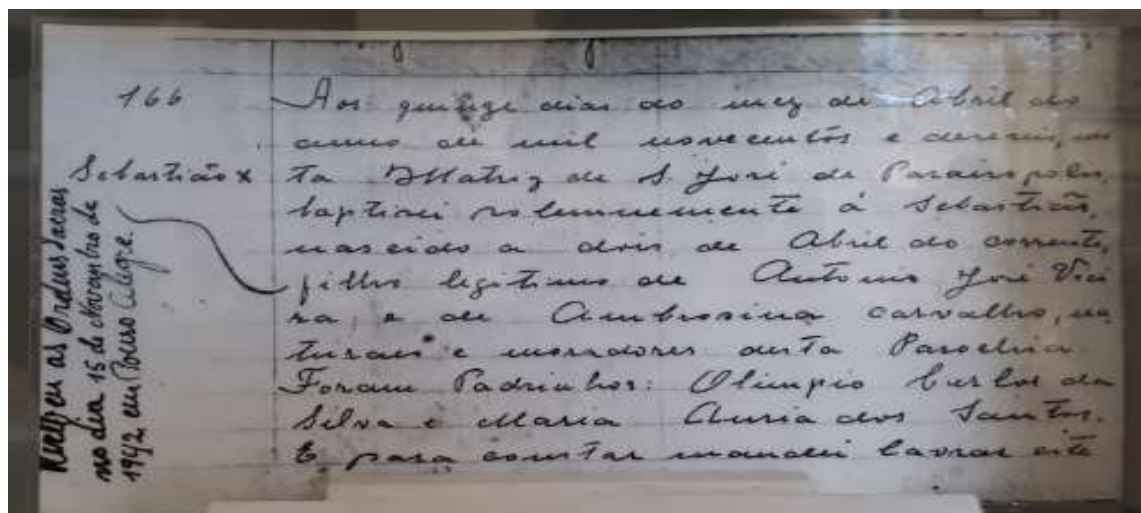 166
Sebastião x
Recebeu as Ordens Sacras
no dia 15 de Novembro de
1942 em Pouso Alegre.
Aos quinze dias do mez de Abril do
anno de mil novecentos e dezeseis, nes
ta Matriz de S. José de Paraisopolis,
baptisei solemnemente á Sebastião,
nascido a dois de Abril do corrente,
filho legitimo de Antonio José Viei
ra, e de Ambrosina Carvalho, na
turaes e moradores desta Parochia
Foram Padrinhos: Olimpio Carlos da
Silva e Maria dos Santos.
E para constar mandei lavrar este